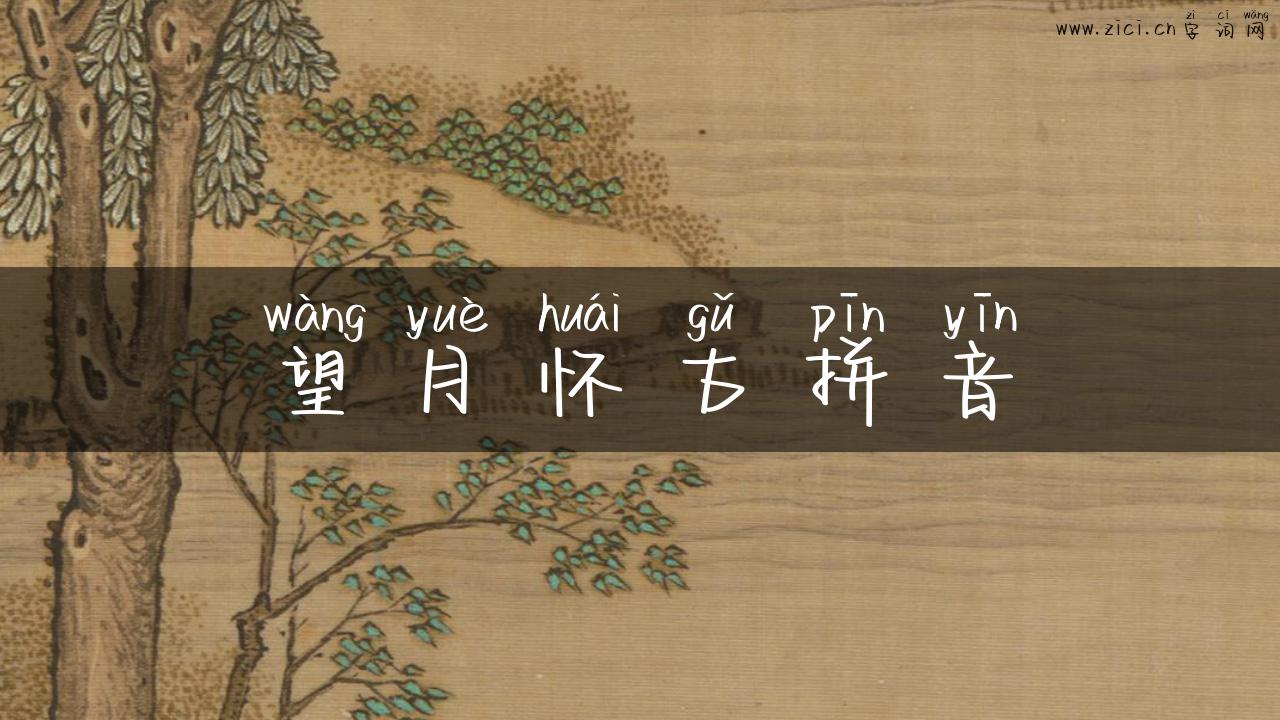 zì cí wǎng
www.zici.cn 字词网
wàng yuè huái gǔ pīn yīn
望月怀古拼音